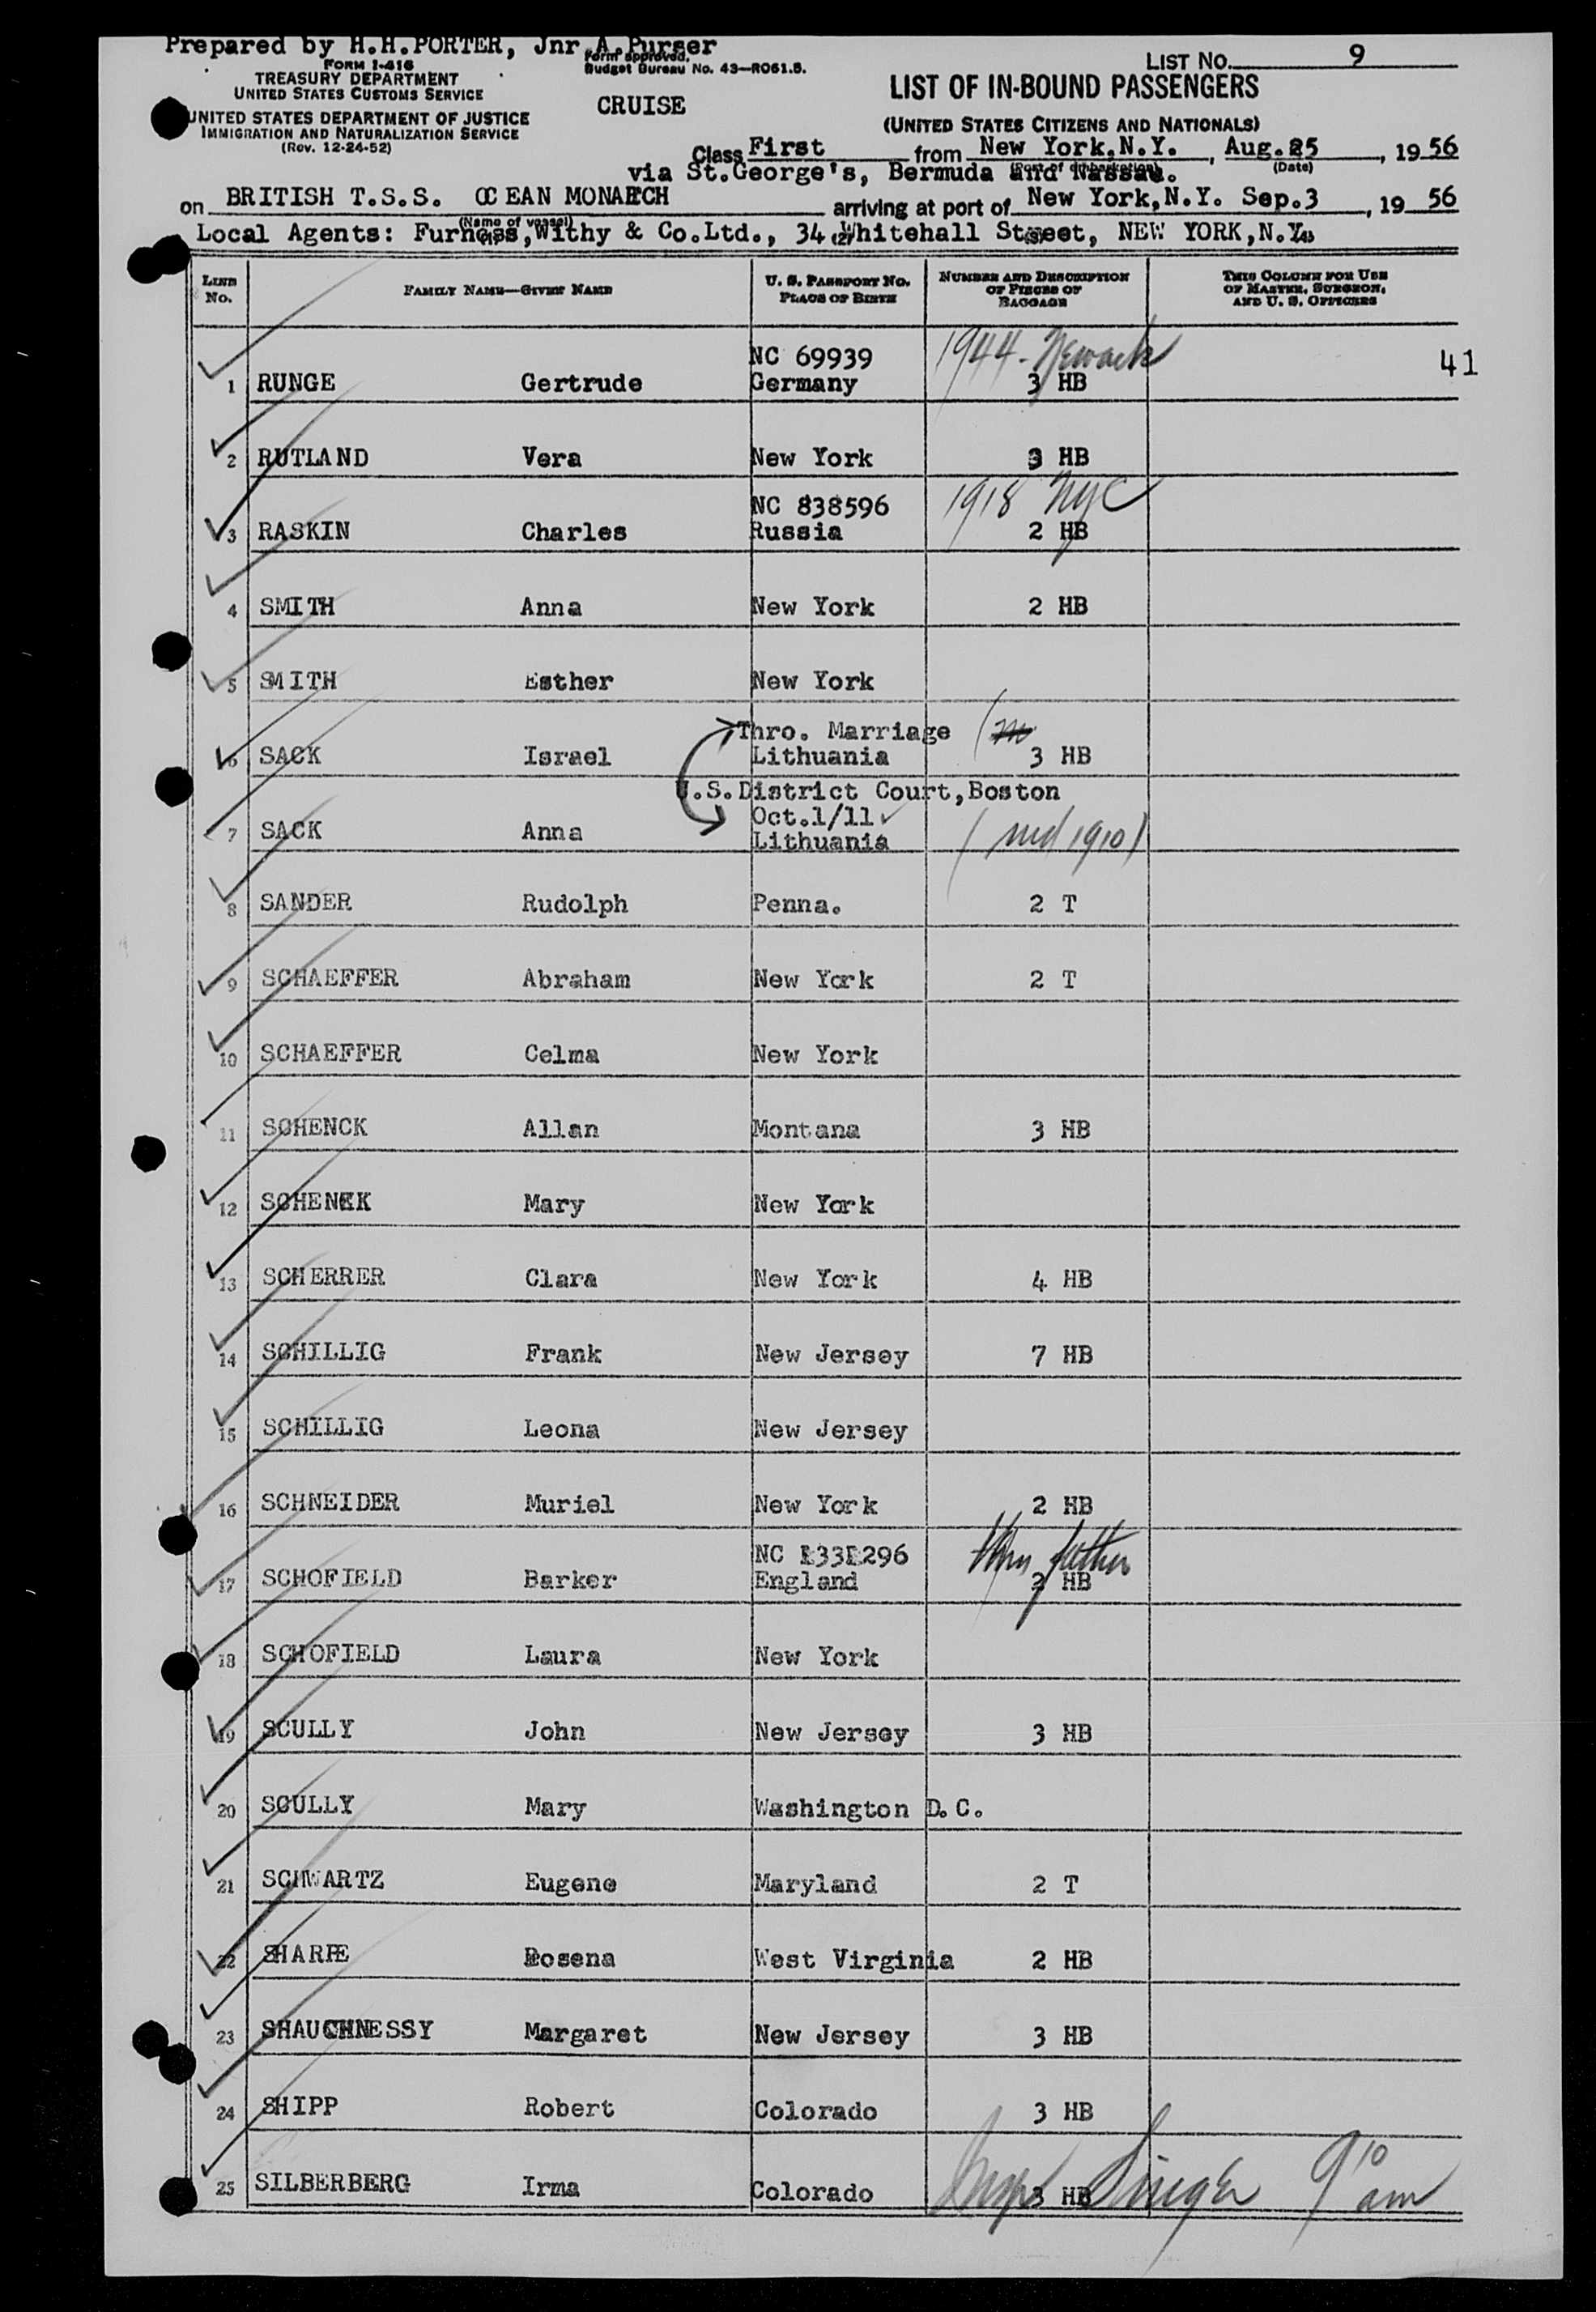 Prepared by H.H.PORTER, Jnr.A.Purser
FORM I-416
TREASURY DEPARTMENT
UNITED STATES CUSTOMS SERVICE
UNITED STATES DEPARTMENT OF JUSTICE
IMMIGRATION AND NATURALIZATION SERVICE
(Rev. 12-24-52)
Form approved.
Budget Bureau No. 43—RO61.5.
CRUISE
LIST No. 9
LIST OF IN-BOUND PASSENGERS
(UNITED STATES CITIZENS AND NATIONALS)
Class First from New York,N.Y. , Aug.25 , 19 56
(Port of embarkation) (Date)
via St.George's, Bermuda and Nassau.
on BRITISH T.S.S. OCEAN MONARCH arriving at port of New York,N.Y. Sep.3 , 19 56
(Name of vessel)
Local Agents: Furness,Withy & Co.Ltd., 34 Whitehall Street, NEW YORK,N.Y.
(1) (2) (3) (4)
LINE No. FAMILY NAME—GIVEN NAME U. S. PASSPORT No. PLACE OF BIRTH NUMBER AND DESCRIPTION OF PIECES OF BAGGAGE THIS COLUMN FOR USE OF MASTER, SURGEON, AND U. S. OFFICERS
NC 69939 1944 - Newark
1 RUNGE Gertrude Germany 3 HB 41
2 RUTLAND Vera New York 3 HB
NC 838596 1918 NYC
3 RASKIN Charles Russia 2 HB
4 SMITH Anna New York 2 HB
5 SMITH Esther New York
Thro. Marriage (m
6 SACK Israel Lithuania 3 HB
U.S.District Court,Boston
Oct.1/11
7 SACK Anna Lithuania (md 1910)
8 SANDER Rudolph Penna. 2 T
9 SCHAEFFER Abraham New York 2 T
10 SCHAEFFER Celma New York
11 SCHENCK Allan Montana 3 HB
12 SCHENCK Mary New York
13 SCHERRER Clara New York 4 HB
14 SCHILLIG Frank New Jersey 7 HB
15 SCHILLIG Leona New Jersey
16 SCHNEIDER Muriel New York 2 HB
NC 1331296 thru father
17 SCHOFIELD Barker England 2 HB
18 SCHOFIELD Laura New York
19 SCULLY John New Jersey 3 HB
20 SCULLY Mary Washington D.C.
21 SCHWARTZ Eugene Maryland 2 T
22 SHARPE Rosena West Virginia 2 HB
23 SHAUGHNESSY Margaret New Jersey 3 HB
24 SHIPP Robert Colorado 3 HB
25 SILBERBERG Irma Colorado 3 HB
Singer 9 10 am